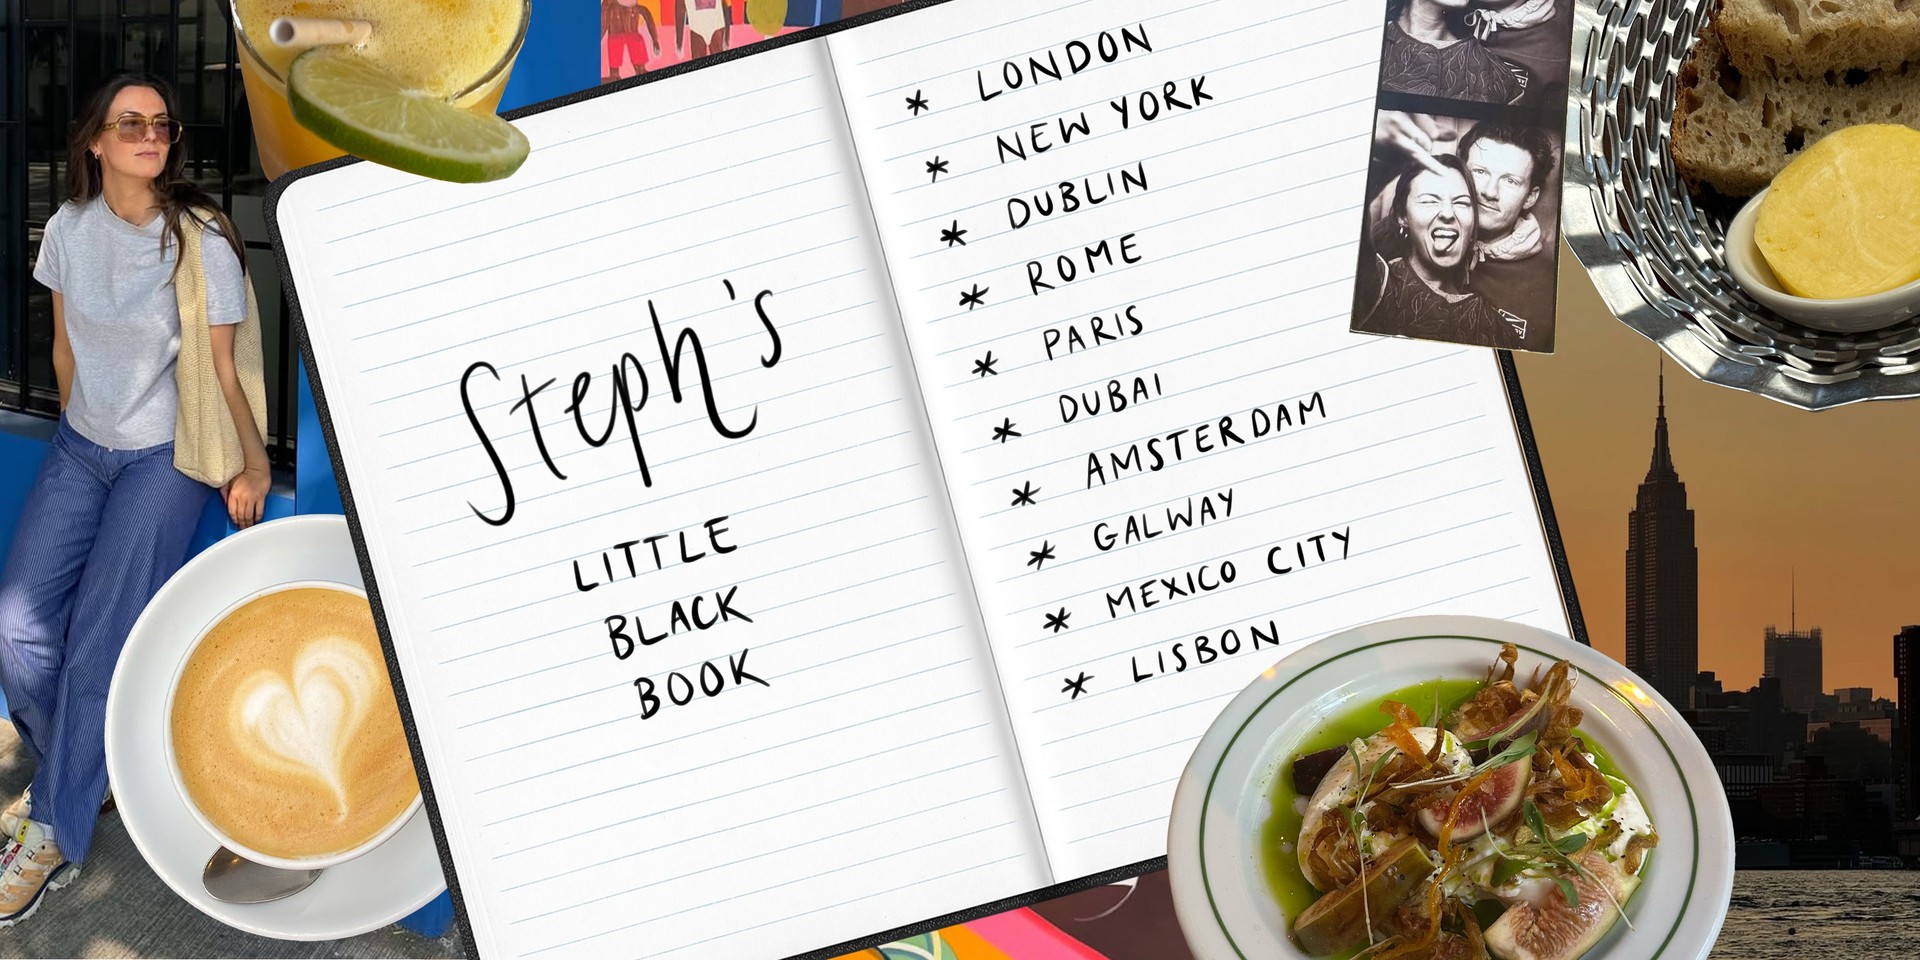 Steph's
LITTLE
BLACK
BOOK
* LONDON
* NEW YORK
* DUBLIN
* ROME
* PARIS
* DUBAI
* AMSTERDAM
* GALWAY
* MEXICO CITY
* LISBON